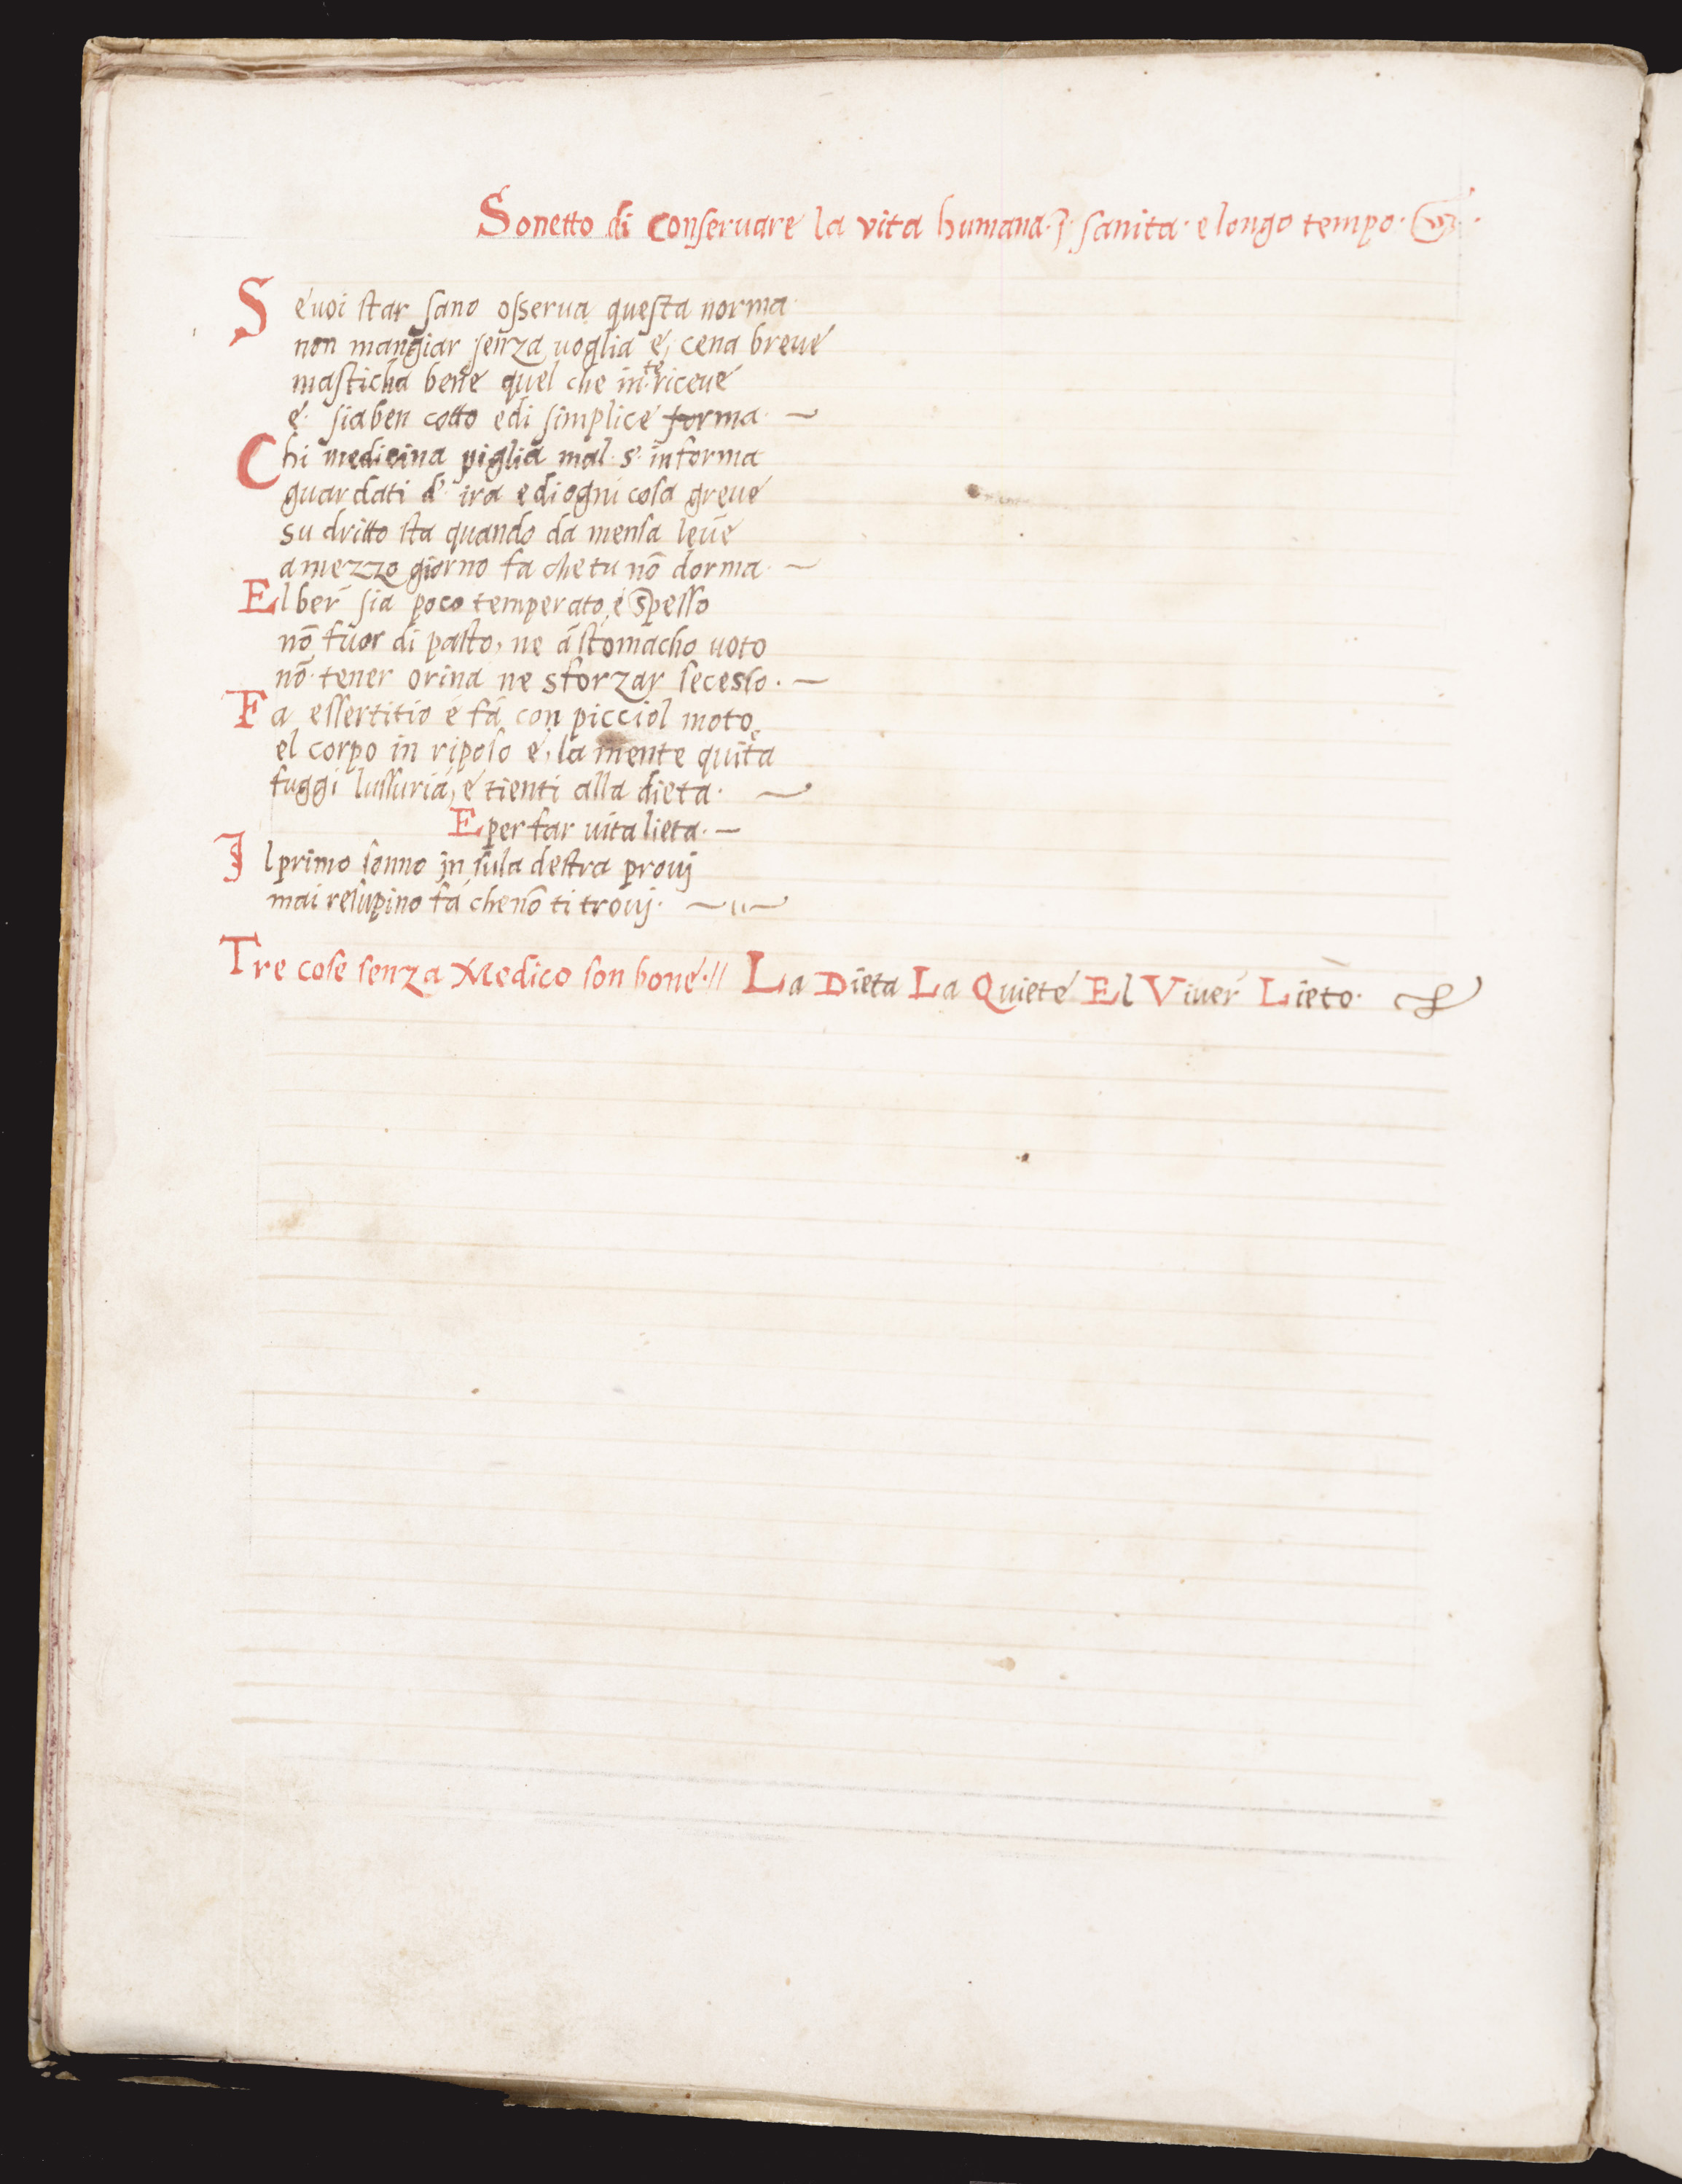 Sonetto di Conseruare la vita humana· J· sanita· e longo tempo·
Se uoi star sano osserua questa norma
non mangiar senza uoglia é, cena breué
masticha bene quel che in te riceué
é· sia ben cotto e di simplicé forma·
Chi medicina piglia mal s' informa
guardati d' ira e di ogni cosa greué
su dritto sta quando da mensa leué
a mezzo giorno fa che tu nō dorma·
El ber sia poco temperato, é spesso
nō fuor di pasto, ne á stomacho uoto
nō· tener orina ne sforzar secesso·
Fa essertitio é fá con picciol moto
el corpo in riposo é, la mente quieta
fuggi lussuria, é tienti alla dieta·
E per far uita lieta·
Il primo sonno in sula destra prouj
mai resupino fá che nō ti trouj·
Tre cose senza Medico son boné·// La Dieta La Quieté El Viuer Lieto·